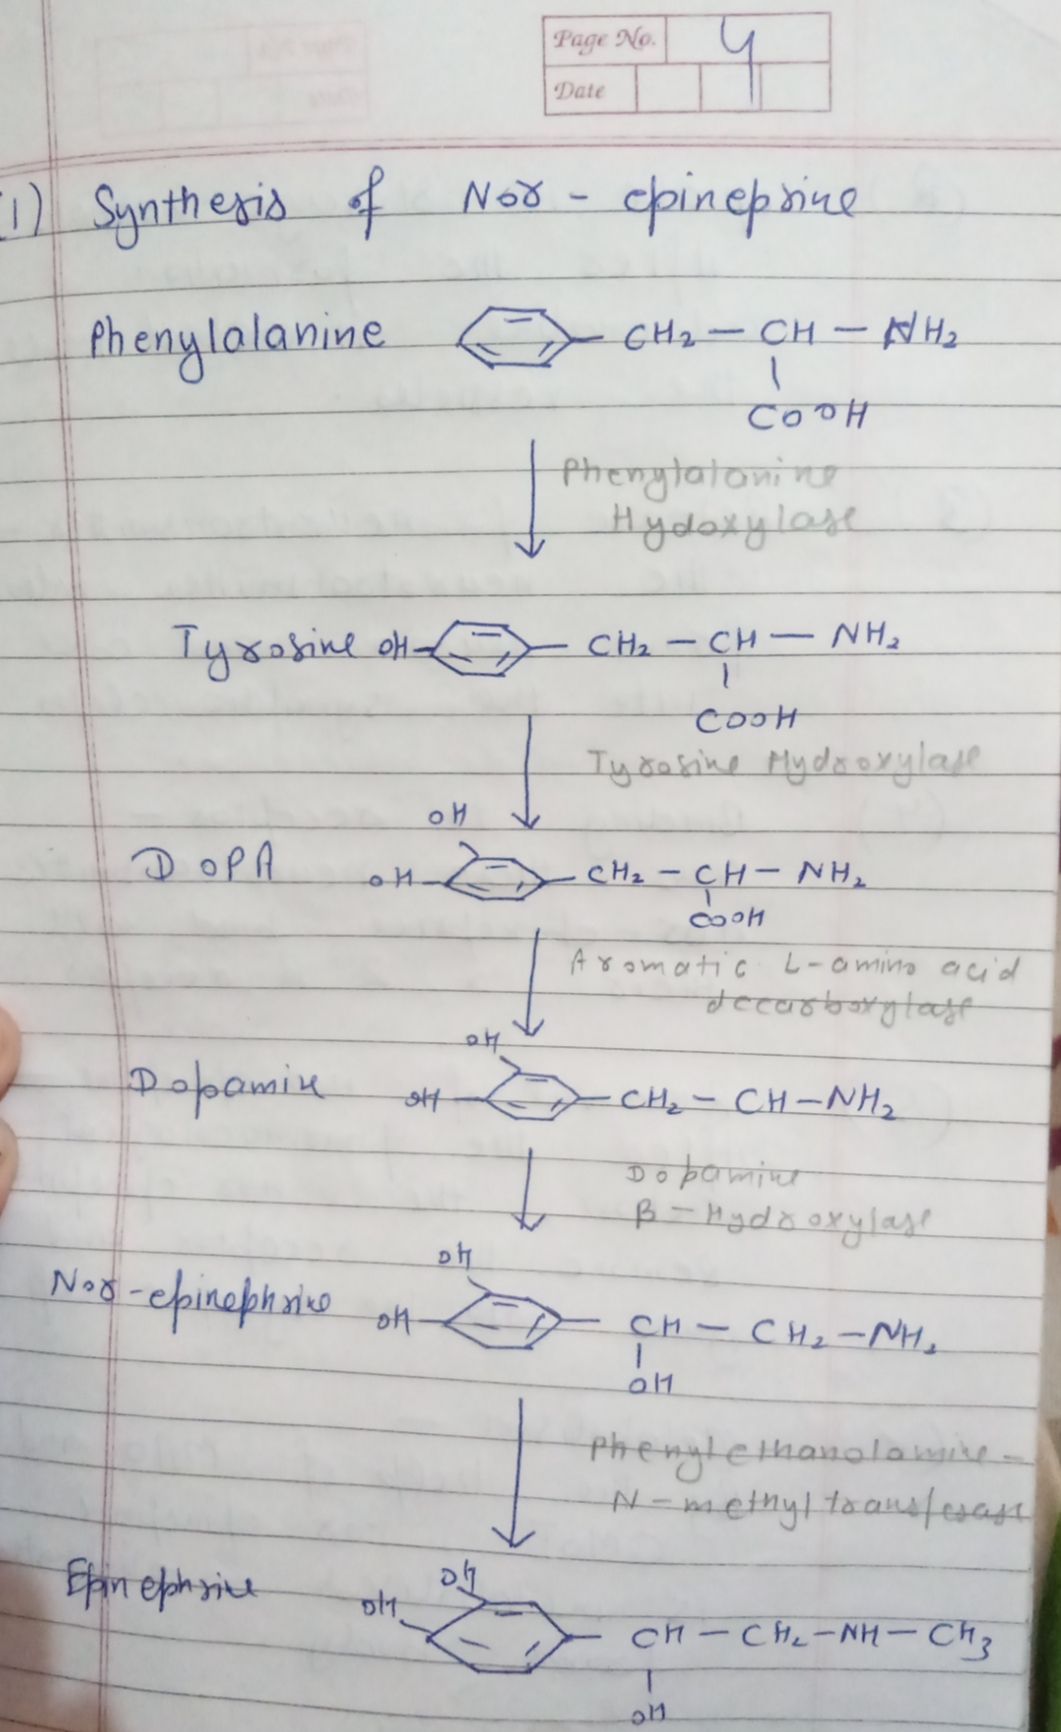 Page No. 4
Date
(1) Synthesis of Nor - epineprine
Phenylalanine CH₂ — CH — NH₂
COOH
Phenylalanine
Hydoxylase
Tyrosine OH CH₂ — CH — NH₂
COOH
Tyrosine Hydroxylase
OH
DOPA OH CH₂ — CH — NH₂
COOH
Aromatic L-amino acid
decarboxylase
OH
Dopamine OH CH₂ — CH — NH₂
Dopamine
B - Hydroxylase
OH
Nor-epinephrine OH CH — CH₂ — NH₂
OH
Phenylethanolamine -
N - methyl transferase
OH
Epinephrine OH CH — CH₂ — NH — CH₃
OH